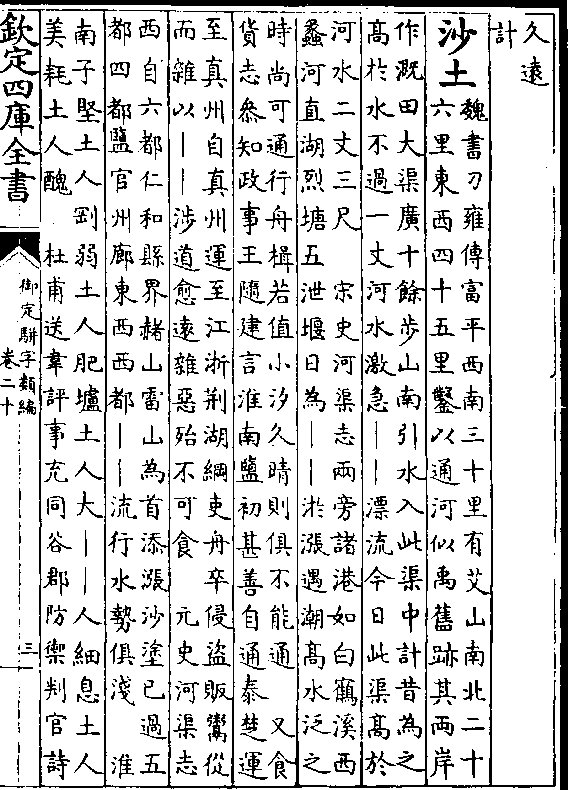 久遠
計
沙土
魏書刁雍傳富平西南三十里有艾山南北二十
六里東西四十五里鑿以通河似禹舊跡其兩岸
作溉田大渠廣十餘步山南引水入此渠中計昔為之
高於水不過一丈河水激急——漂流今日此渠高於
河水二丈三尺　宋史河渠志兩旁諸港如白鶴溪西
蠡河直湖烈塘五泄堰日為——淤漲遇潮高水泛之
時尚可通行舟楫若值小汐久晴則俱不能通　又食
貨志叅知政事王隨建言淮南鹽初甚善自通泰楚運
至真州自真州運至江浙荆湖綱吏舟卒侵盜販鬻從
而雜以——涉道愈遠雜惡殆不可食　元史河渠志
西自六都仁和縣界赭山雷山為首添漲沙塗已過五
都四都鹽官州廊東西西都——流行水勢俱淺　淮
南子堅土人剛弱土人肥壚土人大——人細息土人
美耗土人醜　杜甫送韋評事充同谷郡防禦判官詩
欽定四庫全書
御定駢字類編
卷二十
三